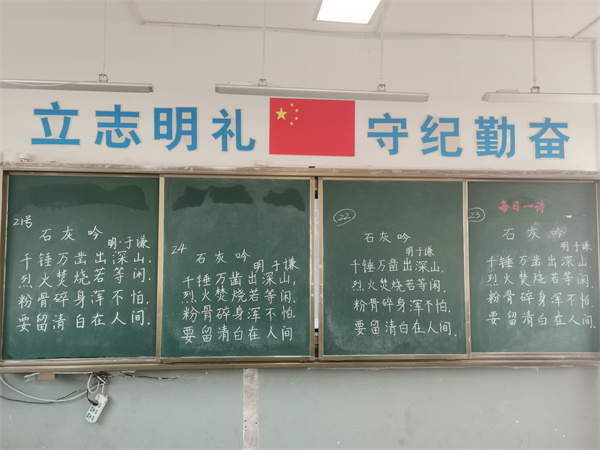 立志明礼 守纪勤奋
21号
石灰吟
明·于谦
千锤万凿出深山,
烈火焚烧若等闲.
粉骨碎身浑不怕
要留清白在人间.
24
石灰吟
明 于谦
千锤万凿出深山,
烈火焚烧若等闲.
粉骨碎身浑不怕
要留清白在人间
22
石灰吟
明于谦
千锤万凿出深山,
烈火焚烧若等闲.
粉骨碎身浑不怕
要留清白在人间.
23
每日一诗
石灰吟
明于谦
千锤万凿出深山,
烈火焚烧若等闲.
粉骨碎身浑不怕,
要留清白在人间.